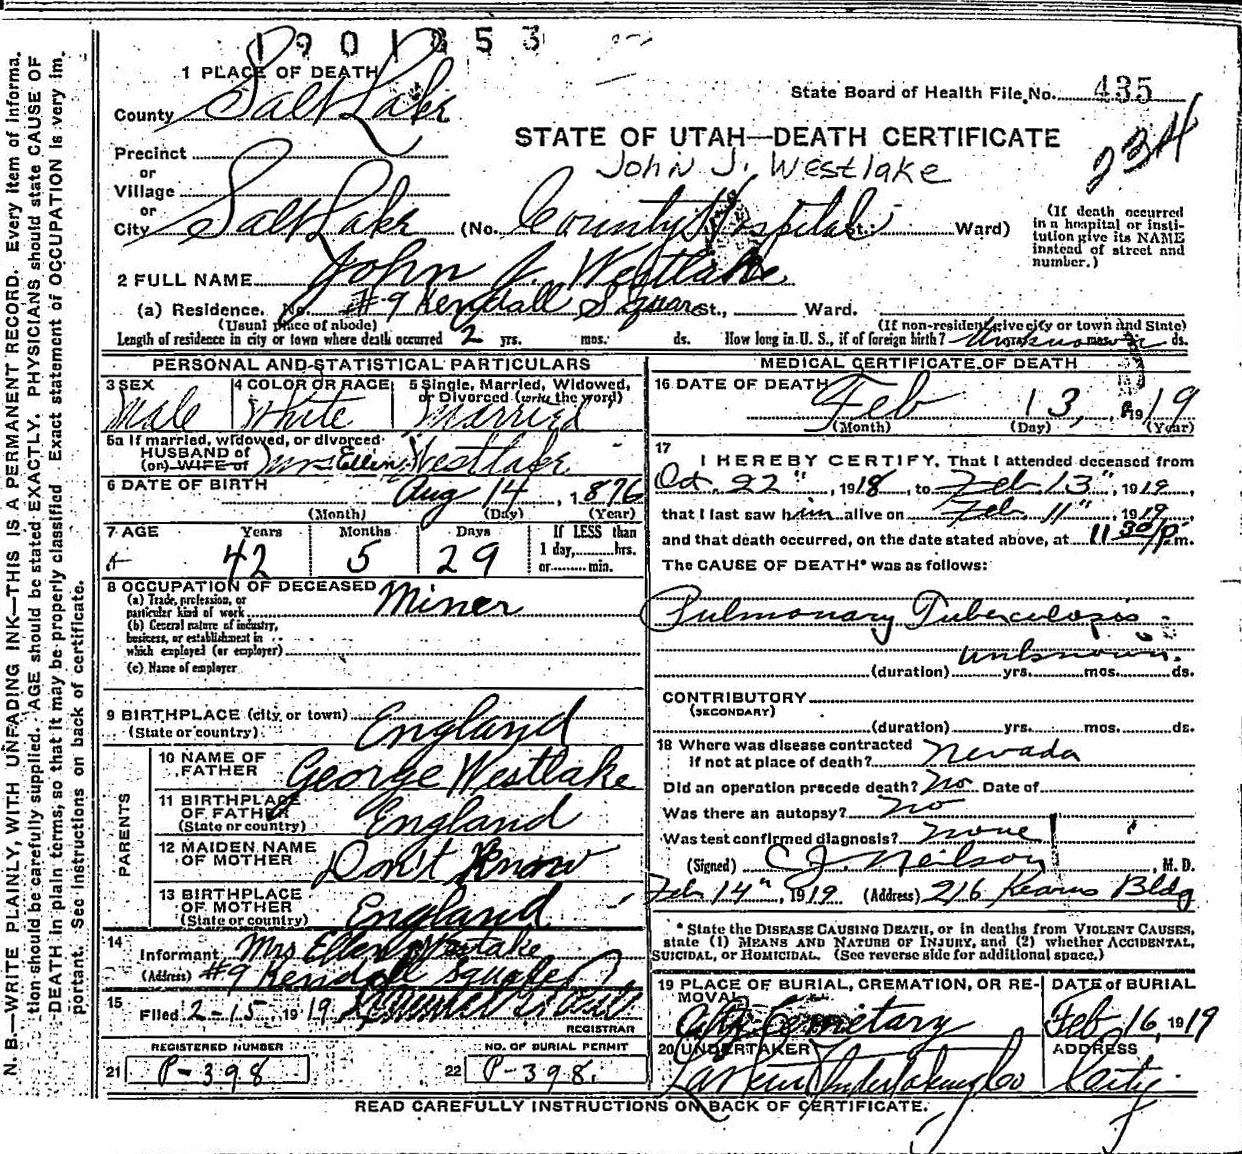 1901353
1 PLACE OF DEATH
County Salt Lake
State Board of Health File No. 435
STATE OF UTAH—DEATH CERTIFICATE
234
John J. Westlake
Precinct
or
Village
or
City Salt Lake (No. County Hospital St.; Ward)
(If death occurred in a hospital or insti-
tution give its NAME
instead of street and
number.)
2 FULL NAME John J. Westlake
(a) Residence. No. #9 Kendall Square St., Ward.
(Usual place of abode) (If non-resident give city or town and State)
Length of residence in city or town where death occurred 2 yrs. mos. ds. How long in U. S., if of foreign birth? Unknown ds.
PERSONAL AND STATISTICAL PARTICULARS
3 SEX Male
4 COLOR OR RACE White
5 Single, Married, Widowed,
or Divorced (write the word)
Married
5a If married, widowed, or divorced
HUSBAND of
(or) WIFE of Mrs Ellen Westlake
6 DATE OF BIRTH Aug 14, 1876
(Month) (Day) (Year)
7 AGE Years Months Days If LESS than
42 5 29 1 day, hrs.
or min.
8 OCCUPATION OF DECEASED Miner
(a) Trade, profession, or
particular kind of work
(b) General nature of industry,
business, or establishment in
which employed (or employer)
(c) Name of employer
9 BIRTHPLACE (city or town)
(State or country) England
PARENTS
10 NAME OF
FATHER George Westlake
11 BIRTHPLACE
OF FATHER
(State or country) England
12 MAIDEN NAME
OF MOTHER Don't Know
13 BIRTHPLACE
OF MOTHER
(State or country) England
14
Informant Mrs Ellen Westlake
(Address) #9 Kendall Square
15
Filed 2-15, 1919
REGISTRAR
REGISTERED NUMBER
21 P-398
NO. OF BURIAL PERMIT
22 P-398.
MEDICAL CERTIFICATE OF DEATH
16 DATE OF DEATH
Feb 13, 1919
(Month) (Day) (Year)
17
I HEREBY CERTIFY, That I attended deceased from
Oct 22", 1918, to Feb 13", 1919,
that I last saw him alive on Feb 11" 1919,
and that death occurred, on the date stated above, at 11 30/p m.
The CAUSE OF DEATH* was as follows:
Pulmonary Tuberculosis
unknown.
(duration) yrs. mos. ds.
CONTRIBUTORY
(SECONDARY)
(duration) yrs. mos. ds.
18 Where was disease contracted
If not at place of death? Nevada
Did an operation precede death? No Date of
Was there an autopsy? No
Was test confirmed diagnosis? none
(Signed) C. J. Neilson, M. D.
Feb 14", 1919 (Address) 216 Kearns Bldg
* State the DISEASE CAUSING DEATH, or in deaths from VIOLENT CAUSES,
state (1) MEANS AND NATURE OF INJURY, and (2) whether ACCIDENTAL,
SUICIDAL, or HOMICIDAL. (See reverse side for additional space.)
19 PLACE OF BURIAL, CREMATION, OR RE-
MOVAL
City Cemetary
DATE of BURIAL
Feb 16, 1919
20 UNDERTAKER
Larkin Undertaking Co
ADDRESS
City
READ CAREFULLY INSTRUCTIONS ON BACK OF CERTIFICATE.
N. B.—WRITE PLAINLY, WITH UNFADING INK—THIS IS A PERMANENT RECORD. Every item of informa-
tion should be carefully supplied. AGE should be stated EXACTLY. PHYSICIANS should state CAUSE OF
DEATH in plain terms, so that it may be properly classified. Exact statement of OCCUPATION is very im-
portant. See instructions on back of certificate.